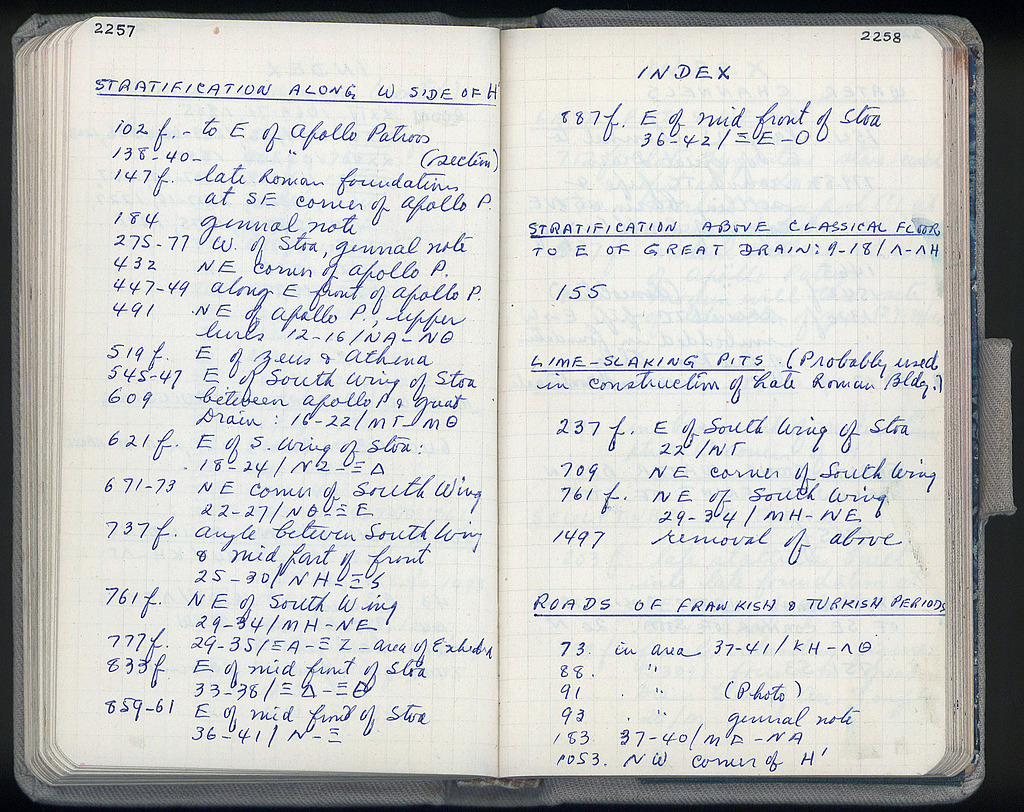 2257
STRATIFICATION ALONG W SIDE OF H'
102 f. - to E of Apollo Patroos
138-40 - " (section)
147 f. late Roman foundations
at SE corner of Apollo P.
184 general note
275-77 W. of Stoa, general note
432 NE corner of Apollo P.
447-49 along E front of Apollo P.
491 NE of Apollo P., upper
levels 12-16/ΝΑ-ΝΘ
519 f. E of Zeus & Athena
545-47 E of South Wing of Stoa
609 between Apollo P. & Great
Drain: 16-22/ΜΓ-ΜΘ
621 f. E of S. Wing of Stoa:
18-24/ΝΖ-ΞΔ
671-73 NE corner of South Wing
22-27/ΝΘ-ΞΕ
737 f. angle between South Wing
& mid part of front
25-30/ΝΗ-ΞS
761 f. NE of South Wing
29-34/ΜΗ-ΝΕ
777 f. 29-35/ΞΑ-ΞΖ - area of Exhedra
833 f. E of mid front of Stoa
33-38/ΞΔ-ΞΘ
859-61 E of mid front of Stoa
36-41/Ν-Ξ
2258
INDEX
887 f. E of mid front of Stoa
36-42/ΞΕ-Ο
STRATIFICATION ABOVE CLASSICAL FLOOR
TO E OF GREAT DRAIN: 9-18/Λ-ΛΗ
155
LIME-SLAKING PITS. (Probably used
in construction of Late Roman Bldg.)
237 f. E of South Wing of Stoa
22/ΝΓ
709 NE corner of South Wing
761 f. NE of South Wing
29-34/ΜΗ-ΝΕ
1497 removal of above
ROADS OF FRANKISH & TURKISH PERIODS
73. in area 37-41/ΚΗ-ΛΘ
88. "
91 . " (Photo)
93 . " general note
183 37-40/ΜΕ-ΝΑ
1053. NW corner of H'